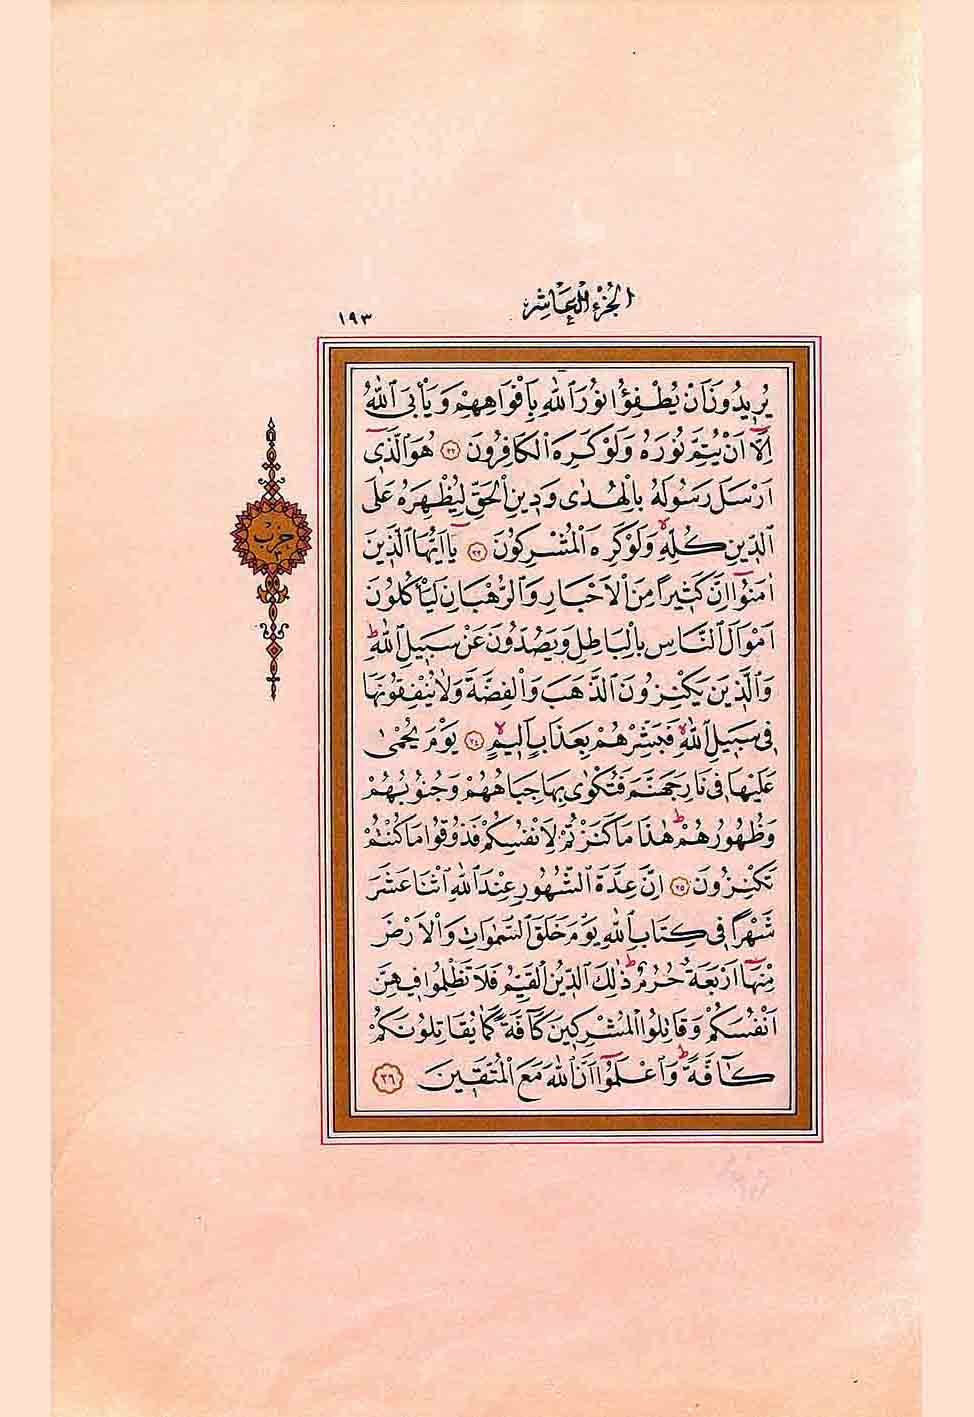 الجزء العاشر
١٩٣
يُرِيدُونَ اَنْ يُطْفِؤُا نُورَ اللّٰهِ بِاَفْوَاهِهِمْ وَيَأْبَى اللّٰهُ
اِلَّٓا اَنْ يُتِمَّ نُورَهُ وَلَوْ كَرِهَ الْكَافِرُونَ ٣٢ هُوَ الَّذٖٓى
اَرْسَلَ رَسُولَهُ بِالْهُدٰى وَدٖينِ الْحَقِّ لِيُظْهِرَهُ عَلَى
الدّٖينِ كُلِّهٖ وَلَوْ كَرِهَ الْمُشْرِكُونَ ٣٣ يَٓا اَيُّهَا الَّذٖينَ
اٰمَنُٓوا اِنَّ كَثٖيراً مِنَ الْاَحْبَارِ وَالرُّهْبَانِ لَيَأْكُلُونَ
اَمْوَالَ النَّاسِ بِالْبَاطِلِ وَيَصُدُّونَ عَنْ سَبٖيلِ اللّٰهِ ط
وَالَّذٖينَ يَكْنِزُونَ الذَّهَبَ وَالْفِضَّةَ وَلَا يُنْفِقُونَهَا
فٖى سَبٖيلِ اللّٰهِ لا فَبَشِّرْهُمْ بِعَذَابٍ اَلٖيمٍ لا ٣٤ يَوْمَ يُحْمٰى
عَلَيْهَا فٖى نَارِ جَهَنَّمَ فَتُكْوٰى بِهَا جِبَاهُهُمْ وَجُنُوبُهُمْ
وَظُهُورُهُمْ ط هٰذَا مَا كَنَزْتُمْ لِاَنْفُسِكُمْ فَذُوقُوا مَا كُنْتُمْ
تَكْنِزُونَ ٣٥ اِنَّ عِدَّةَ الشُّهُورِ عِنْدَ اللّٰهِ اثْنَا عَشَرَ
شَهْراً فٖى كِتَابِ اللّٰهِ يَوْمَ خَلَقَ السَّمٰوَاتِ وَالْاَرْضَ
مِنْهَٓا اَرْبَعَةٌ حُرُمٌ ط ذٰلِكَ الدّٖينُ الْقَيِّمُ فَلَا تَظْلِمُوا فٖيهِنَّ
اَنْفُسَكُمْ وَقَاتِلُوا الْمُشْرِكٖينَ كَٓافَّةً كَمَا يُقَاتِلُونَكُمْ
كَٓافَّةً ط وَاعْلَمُٓوا اَنَّ اللّٰهَ مَعَ الْمُتَّقٖينَ ٣٦
حزب